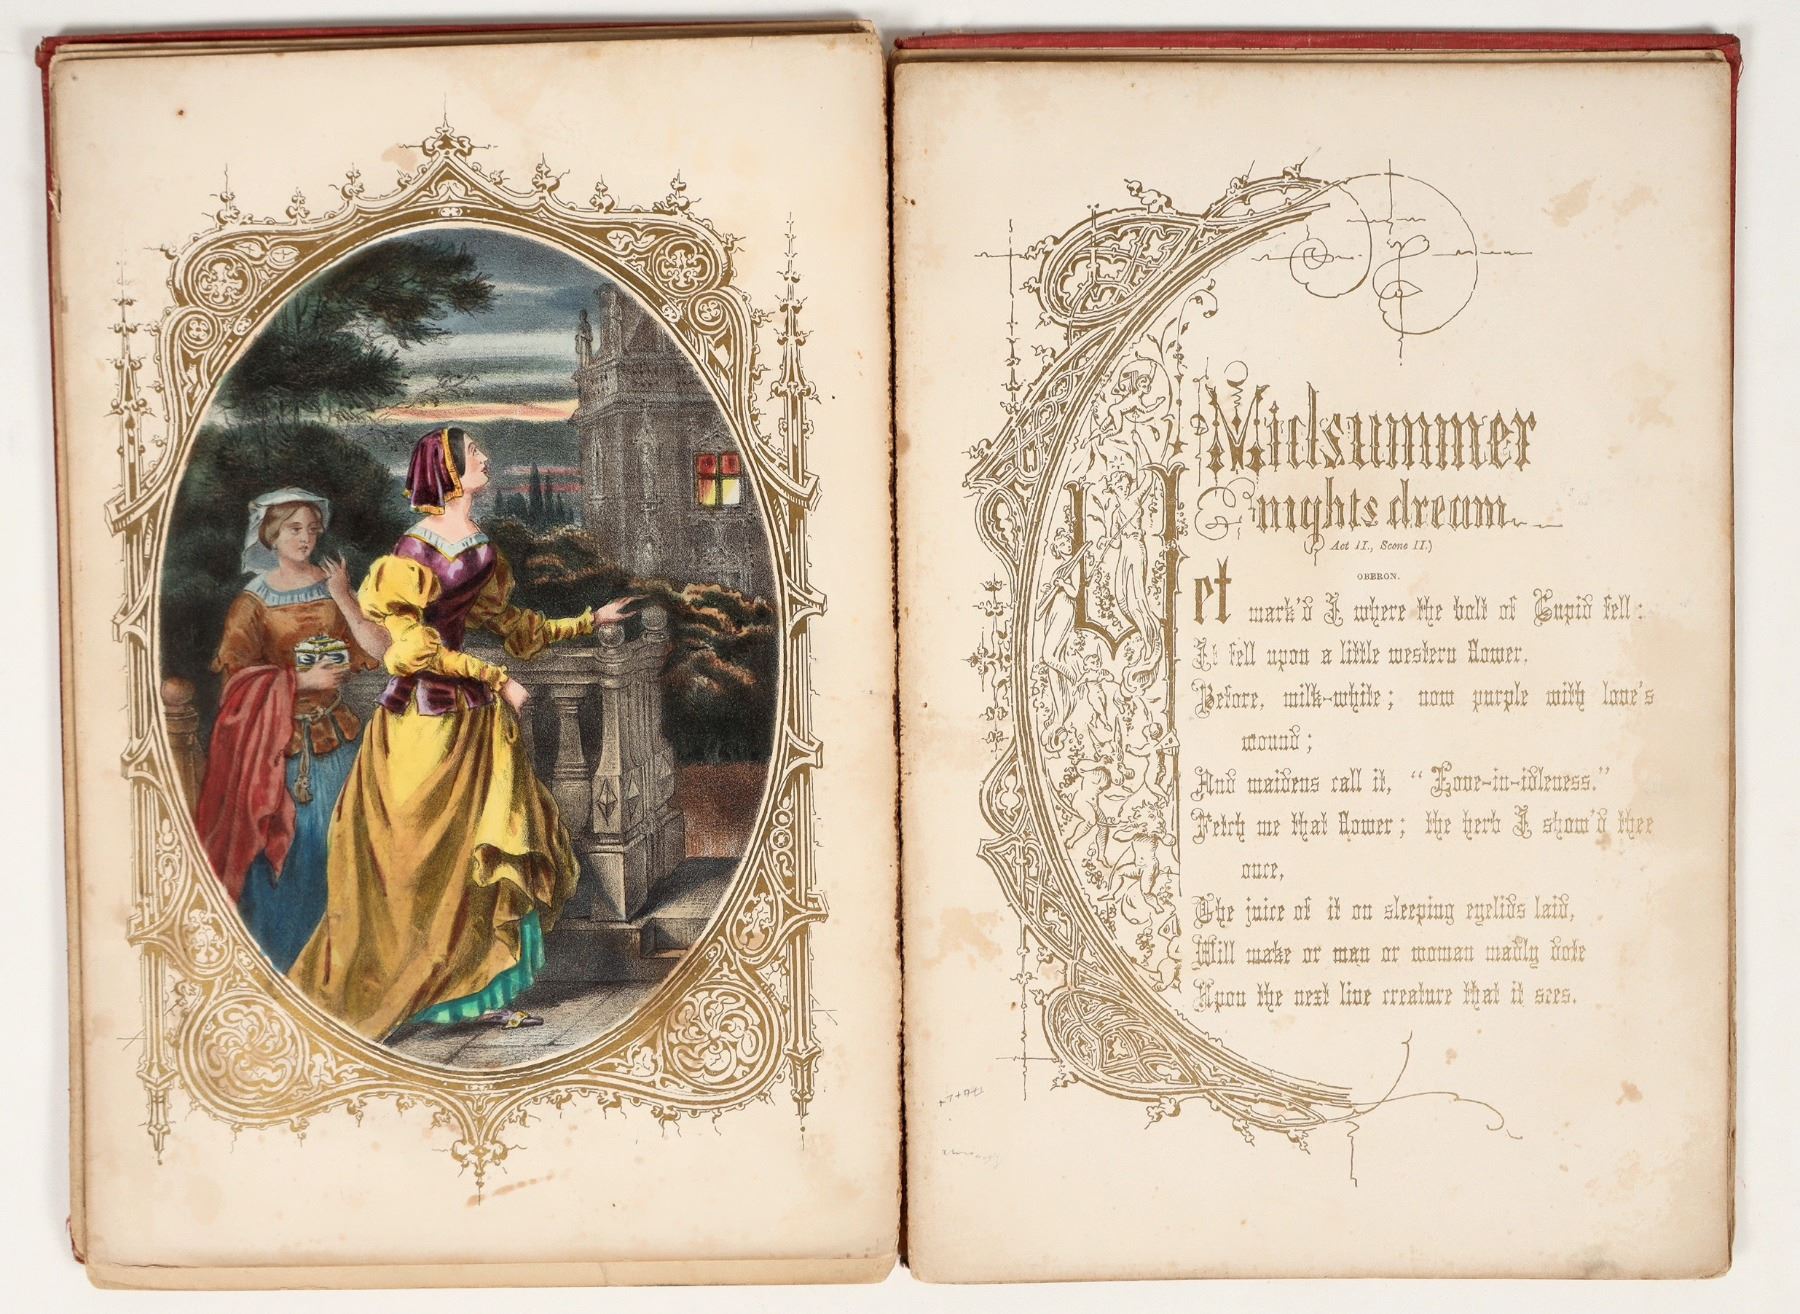 Midsummer
nights dream
Act II., Scene II.)
OBERON.
Yet mark'd I where the bolt of Cupid fell:
It fell upon a little western flower,
Before, milk-white; now purple with love's
wound;
And maidens call it, “Love-in-idleness.”
Fetch me that flower; the herb I show'd thee
once,
The juice of it on sleeping eyelids laid,
Will make or man or woman madly dote
Upon the next live creature that it sees.